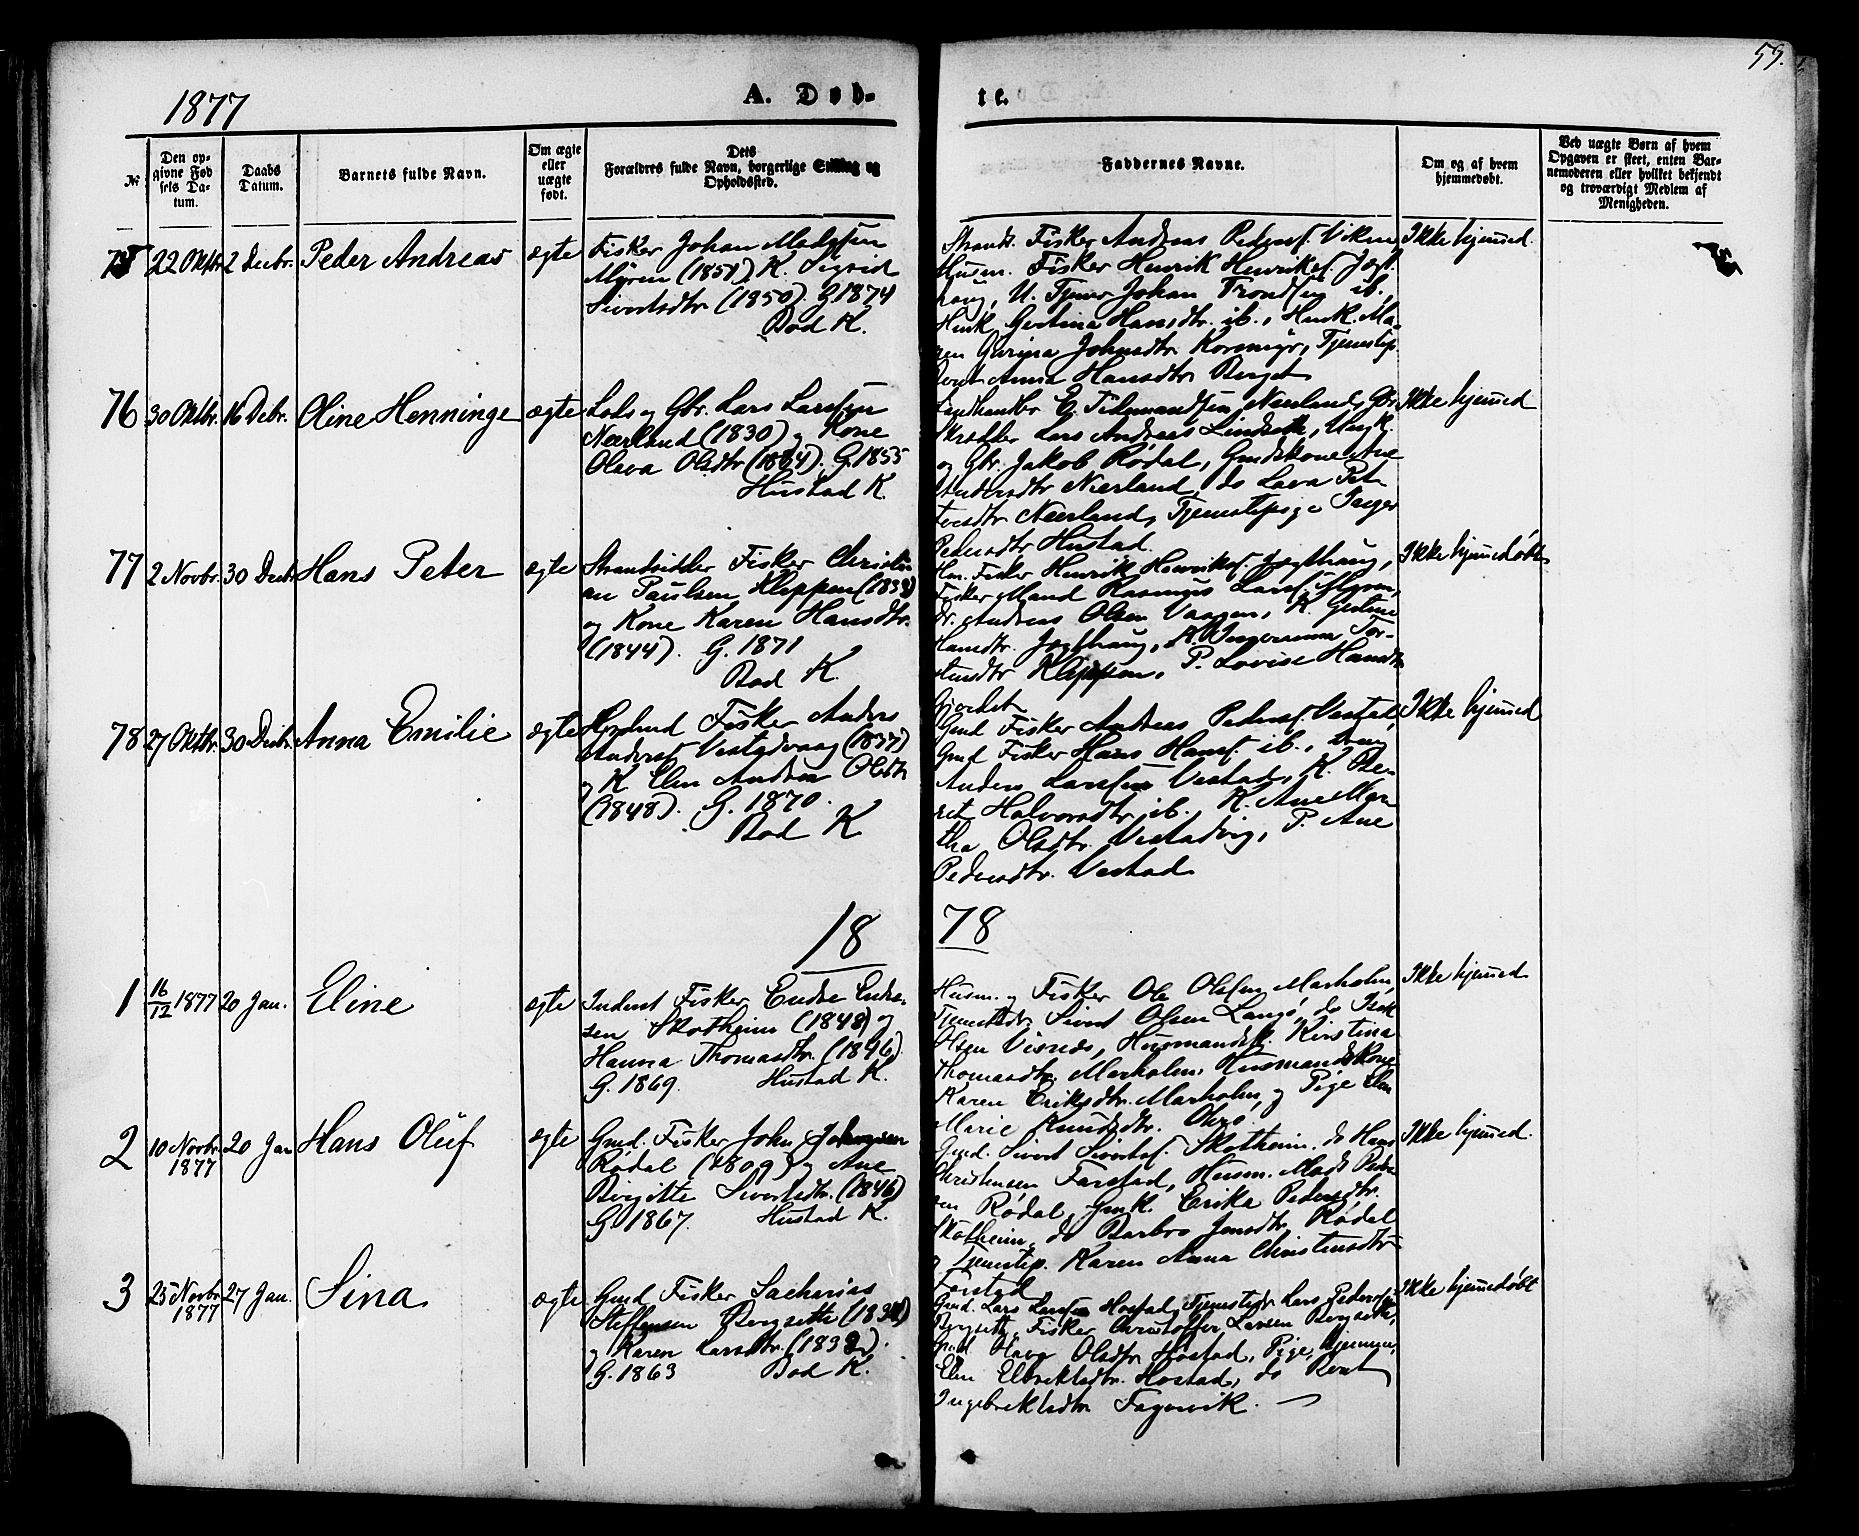 59.
1877
A. Døb-
te.
Nr.
Den op-
givne Fød
sels Da-
tum.
Daabs
Datum.
Barnets fulde Navn.
Om ægte
eller
uægte
født.
Dets
Forældres fulde Navn, borgerlige Stilling og
Opholdssted.
Faddernes Navne.
Om og af hvem
hjemmedøbt.
Ved uægte Børn af hvem
Opgaven er skeet, enten Bar-
nemoderen eller hvilket bekjendt
og troværdigt Medlem af
Menigheden.
75 22 Oktbr. 2 Decbr. Peder Andreas ægte
Fisker Johan Madssen
Myren (1851). K. Sigrid
Sivertsdtr (1850). G. 1874
Bod K.
Strands. Fisker Andreas Peders. Viken
Husm. Fisker Henrik Henriks. Jægt-
haug, U. Tjener Johan Trondsen ib.,
Husk. Gertina Hansdtr. ib., Husk. Ma-
Gurina Johnsdtr Korsmyr, Tjenstep.
Berit Anna Hansdtr Berget
Ikke hjemmed.
76 30 Oktbr. 16 Debr. Oline Henninge ægte
Lods og Gbr. Lars Larssen
Nærland (1830) og Kone
Olava Olsdtr (1834). G. 1855
Hustad K.
E. Tidemandsen Nærland, Gbr
Skrædder Lars Andreas Lindseth, Ungk.
og Gbr. Jakob Rødal, Gmdskone Ane
Andersdtr Nærland, do Lava Pet-
tersdtr Nærland, Tjenstepige Inger
Pedersdtr Hustad.
Ikke hjemmed
77 2 Novbr. 30 Decbr Hans Peter ægte
Strandsidder Fisker Christi-
an Paulsen Kleppen (1838)
og Kone Karen Hansdtr.
(1844). G. 1871
Bod K.
Hm. Fisker Henrik Henriks. Jægthaug,
Fisker Mand Rasmus Larss. Myren,
Dr. Andreas Olsen Vaagen, K. Gertine
Hansdtr. Jægthaug, K. Ingeranna Tor-
stensdtr Kleppen, P. Lovise Hansdtr
Gjerdet
Ikke hjemmedøbt
78 27 Oktbr. 30 Decbr. Anna Emilie ægte
Fisker Anders
Anderss. Vestadvaag (1837)
og K Elen Andrea Olsdtr
(1848). G. 1870.
Bod K
Gmd Fisker Andreas Peders. Vestad,
Gmd Fisker Hans Hanss. ib., Dreng
Anders Larssen Vestad, K. Be-
ret Halvorsdtr ib., K. Ane Mar-
tha Olsdtr. Vestadvig, P. Ane
Pedersdtr. Vestad
Ikke hjemmed
18 78
1 16/12 1877 20 Jan. Eline ægte
Inderst Fisker Endre Endre-
sen Skotheim (1848) og
Hanna Thomasdtr. (1846).
G. 1869. Hustad K.
Husm. og Fisker Ole Olsen Marholm,
Tjenestedr. Sivert Olsen Langø, do Isak
Olsen Visnes, Husmandsk. Kirstina
Thomasdtr. Marholm, Husmandskone
Karen Eriksdtr. Marholm, og Pige Elen
Marie Knudsdtr.
Ikke hjemmed
2 10 Novbr. 1877 20 Jan Hans Oluf ægte
Gmd. Fisker John Johnsen
Rødal (1809) og Ane
Birgitte Sivertsdtr. (1846)
G. 1867. Hustad K.
Gmd. Sivert Siverts. Skotheim, do Hans
Christensen Farstad, Husm. Mads Peder-
sen Rødal, Gmk. Erika Pedersdtr.
Skotheim, do Barbro Jensdtr. Rødal
og Tjenstep. Karen Anna Christensdtr
Farstad
Ikke hjemmed.
3 25 Novbr. 1877 27 Jan. Sina ægte
Gmd Fisker Sacharias
Steffensen Bergsette (1834)
og Karen Larsdtr. (1838).
G. 1863 Bod K.
Gmd. Lars Larssen Hostad, Tjenestedr. Lars Peders.
Bergsette, Fisker Christoffer Larsen Bergsette,
Gmd Olava Olsdtr Hostad, Pige, hjemme,
Elen Elbrektsdtr. Hostad, do Berit
Ingebrektsdtr Fagervik.
Ikke hjemmedøbt